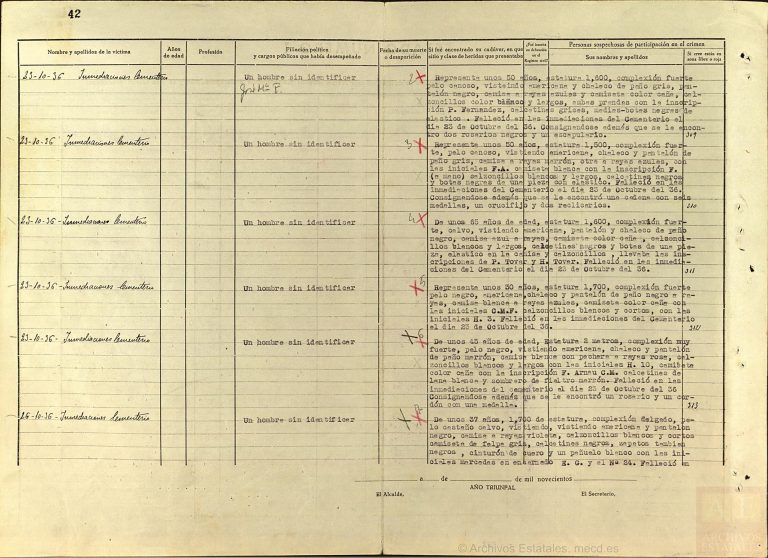 42
Nombre y apellidos de la víctima
Años de edad
Profesión
Filiación política y cargos públicos que había desempeñado
Fecha de su muerte o desaparición
Si fué encontrado su cadáver, en qué sitio y clase de heridas que presentaba
¿Fué inscrita su defunción en el Registro civil?
Personas sospechosas de participación en el crimen
Sus nombres y apellidos
Si cree están en zona libre o roja
23-10-36 Inmediaciones Cementerio
Un hombre sin identificer
José Mª P.
2
Representa unos 50 años, estatura 1,600, complexión fuerte
pelo canoso, vistiendo americana y chaleco de paño gris, pan-
talón negro, camisa a rayas azules y camiseta color caña, cal-
zoncillos color blanco y largos, ambas prendas con la inscrip-
ción P. Fernandez, calcetines grises, medias-botas negras de
elastico . Falleció en las inmediaciones del Cementerio el
dia 23 de Octubre del 36. Consignandose además que se le encon-
tró dos rosarios negros y un escapulario.
309
23-10-36 Inmediaciones Cementerio
Un hombre sin identificar
3
Representa unos 50 años, estatura 1,500, complexión fuer-
te, pelo canoso, vistiendo americana, chaleco y pantalón de
paño gris, camisa a rayas marrón, otra a rayas azules, con
las iniciales F.A. camiseta blanca con la inscripción F.
(a mano) calzoncillos blancos y largos, calcetines negros
y botas negras de una pieza con elastico. Falleció en las
inmediaciones del Cementerio el dia 23 de Octubre del 36.
Consignandose además que se le encontró una cadena con seis
medallas, un crucifijo y dos relicarios.
310
23-10-36 - Inmediaciones Cementerio
Un hombre sin identificar
4
De unos 65 años de edad, estatura 1,600, complexión fuer-
te, calvo, vistiendo americana, pantalón y chaleco de paño
negro, camisa azul a rayas, camiseta color caña , calzonci-
llos blancos y largos, calcetines negros y botas de una pie-
za, elastico en la camisa y calzoncillos , llevaba las ins-
cripciones de P. Tovar y H. Tover. Falleció en las inmedia-
ciones del Cementerio el dia 23 de Octubre del 36.
311
23-10-36 - Inmediaciones Cementerio
Un hombre sin identificar
5
Representa unos 30 años, estatura 1,700, complexión fuerte
pelo negro, americana,chaleco y pantalón de paño negro a ra-
yas, camisa blanca a rayas azules, camiseta color caña con
las iniciales C.M.F. calzoncillos blancos y cortos, con las
iniciales H. 3. Falleció en las inmediaciones del Cementerio
el dia 23 de Octubre del 36.
312
23-10-36 - Inmediaciones Cementerio
Un hombre sin identificar
6
De unos 45 años de edad, Estatura 2 metros, complexión muy
fuerte, pelo negro, vistiendo americana, chaleco y pantalón
de paño marrón, camisa blanca con pechera a rayas rosa, cal-
zoncillos blancos y largos con las iniciales H. 10, camiseta
color caña con la inscripción F. Arnau C.M. calcetines de
lana blanca y sombrero de fieltro marrón. Falleció en las
inmediaciones del cementerio el dia 23 de Octubre del 36
Consignandose además que se le encontró un rosario y un cor-
dón con una medalla.
313
26-10-36 - Inmediaciones Cementerio
Un hombre sin identificar
De unos 37 años, 1,700 de estatura, complexión delgado, pe-
lo castaño calvo, vistiendo, vistiendo americana y pantalon
negro, camisa a rayas violeta, calzoncillos blancos y cortos
camiseta de felpa gris, calcetines negros, zapatos tambien
negros , cinturón de cuero y un pañuelo blanco con las ini-
ciales marcadas en encarnado E. G. y el Nº 24. Falleció en
a de de mil novecientos
AÑO TRIUNFAL
El Alcalde,
El Secretario,
© Archivos Estatales, mecd.es
ARCHIVOS ESTATALES